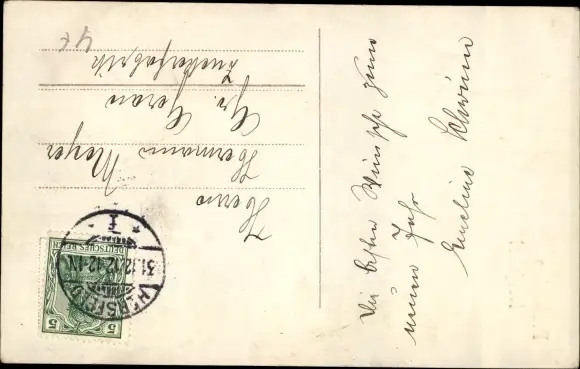 Die besten Wünsche zum
neuen Jahr
Emeline Schwinn
Herrn
Hermann Meyer
Gr. Gerau
Zuckerfabrik
HERSFELD
31.12.12.12-1N.
* f *
DEUTSCHES REICH
5 5